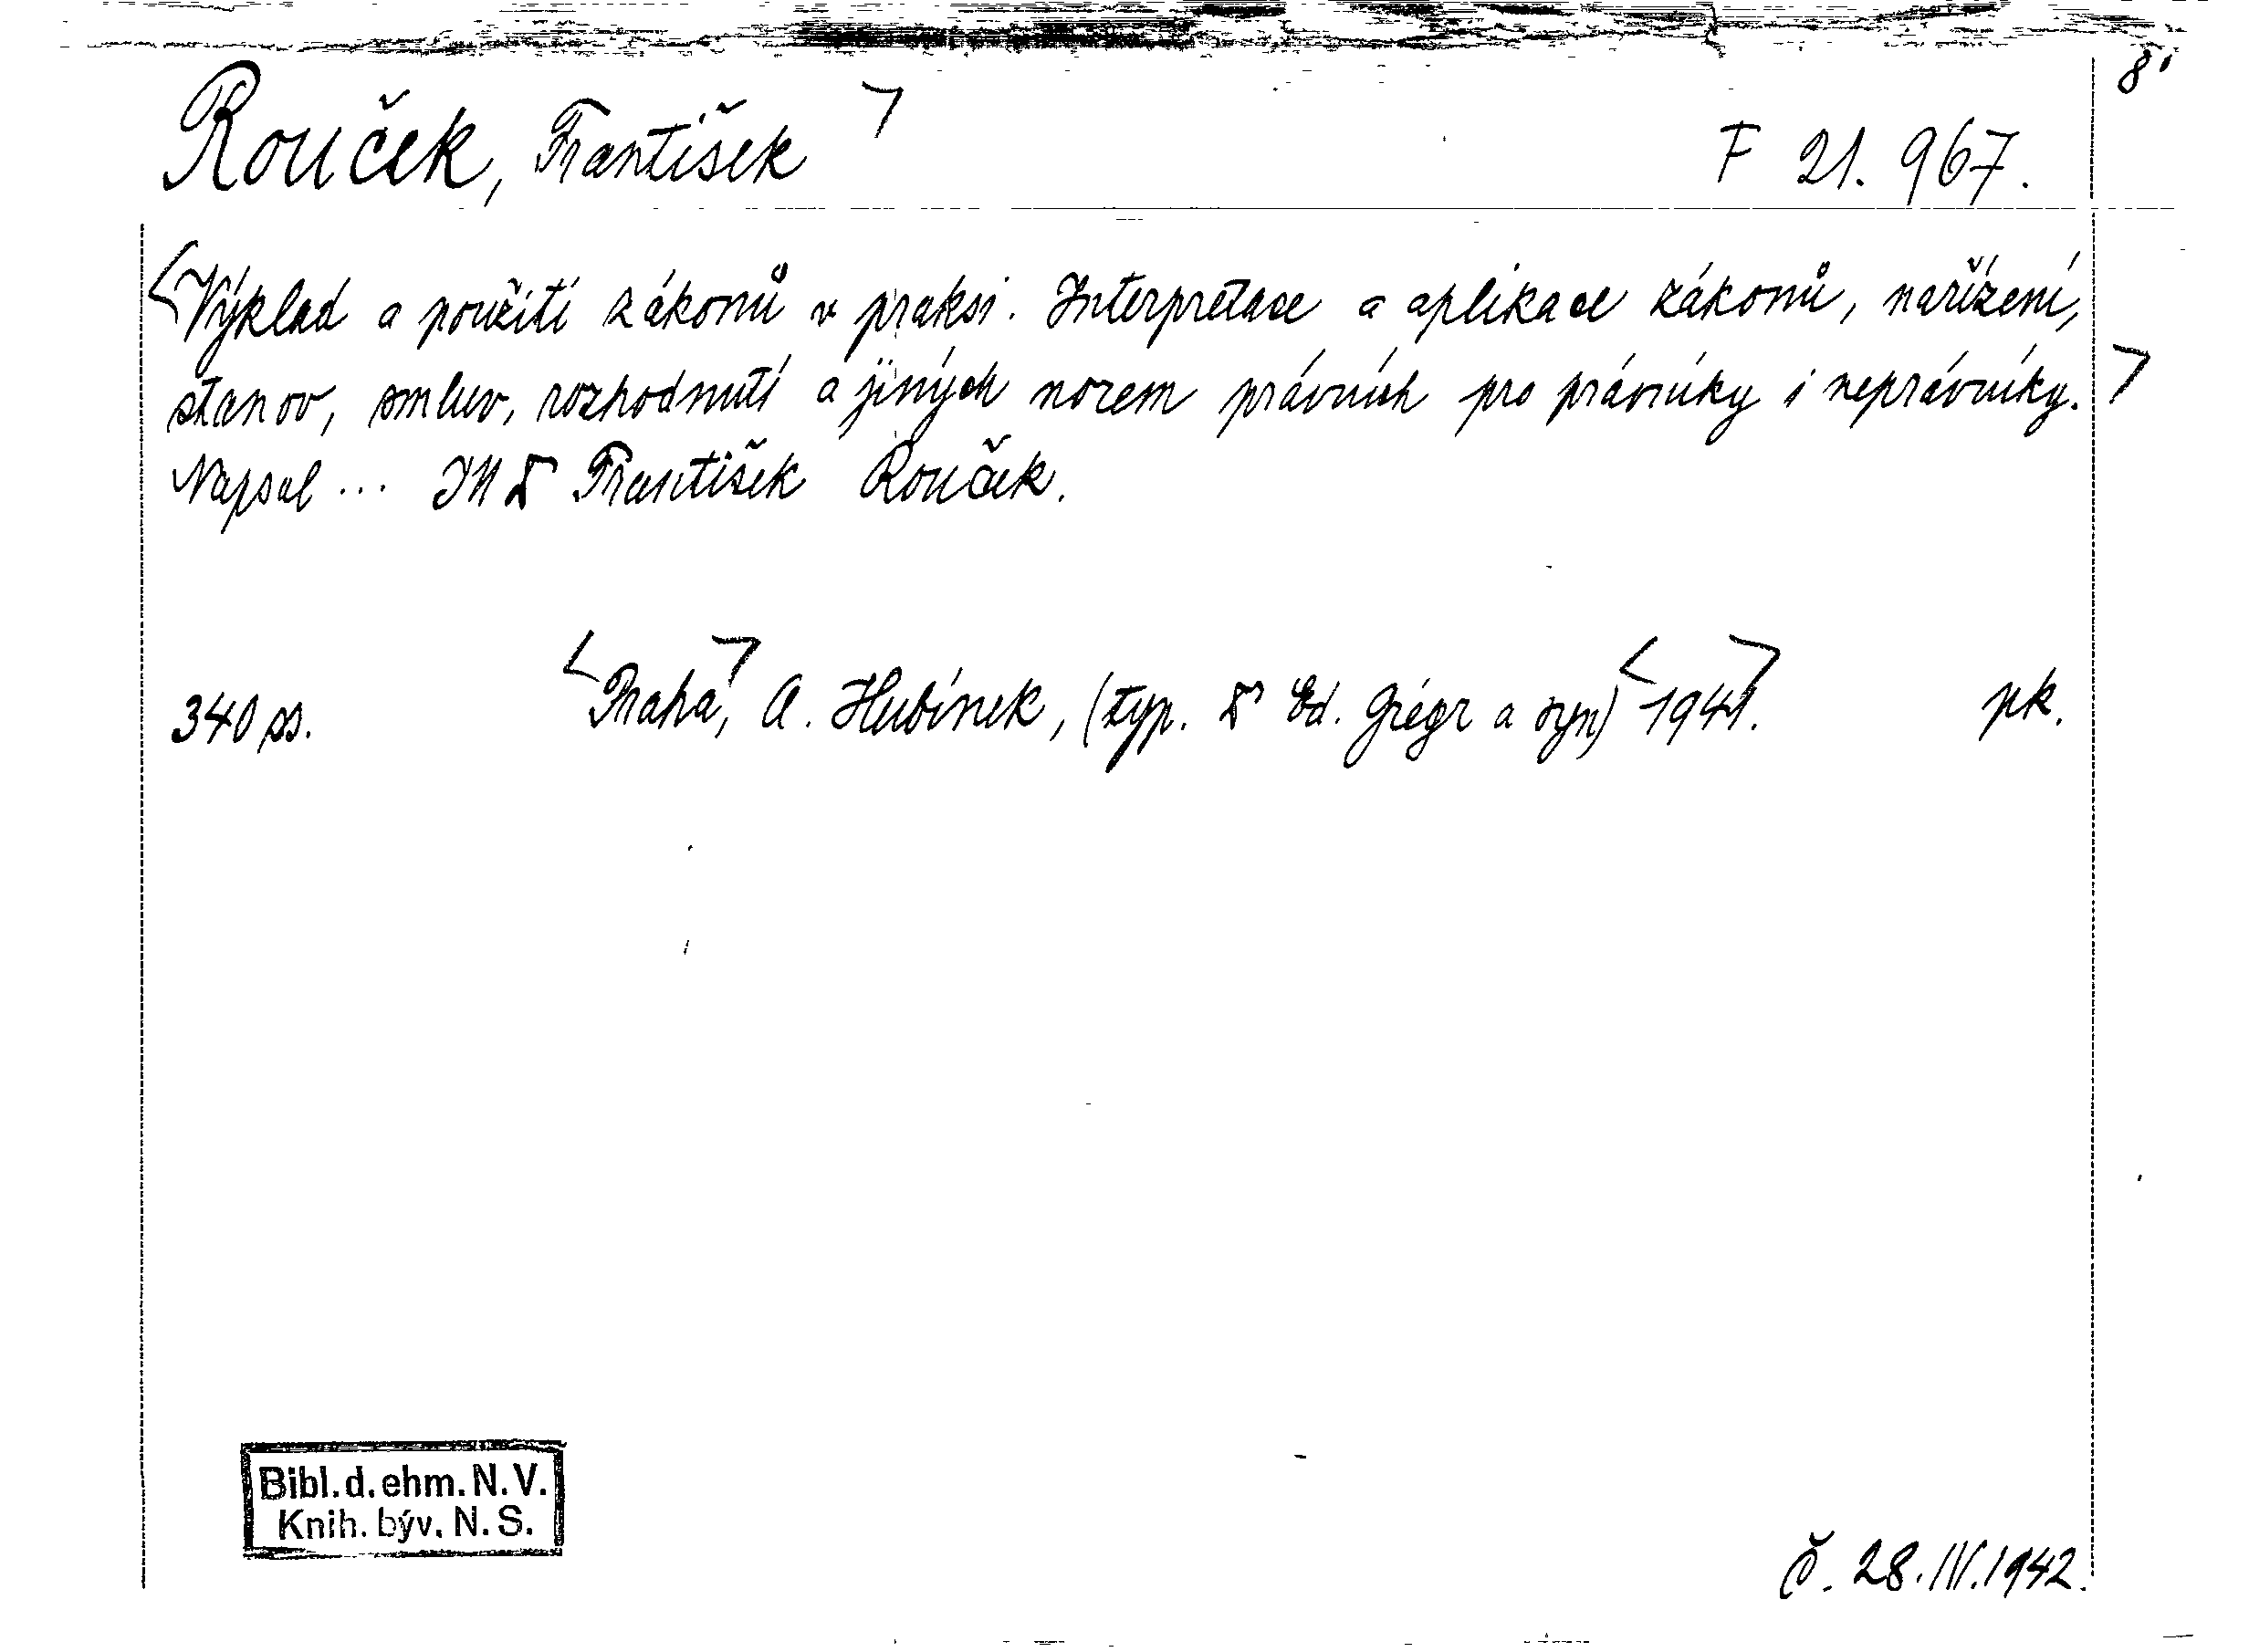 8°
Rouček, František
F 21.967.
Výklad a použití zákonů v praksi. Interpretace a aplikace zákonů, nařízení,
stanov, smluv, rozhodnutí a jiných norem právních pro právníky i neprávníky.
Napsal ... JUDr František Rouček.
340 ss. Praha, A. Hubínek, (typ. Dr Ed. Grégr a syn) 1941. pk.
Bibl. d. ehm. N. V.
Knih. býv. N. S.
Č. 28.IV.1942.